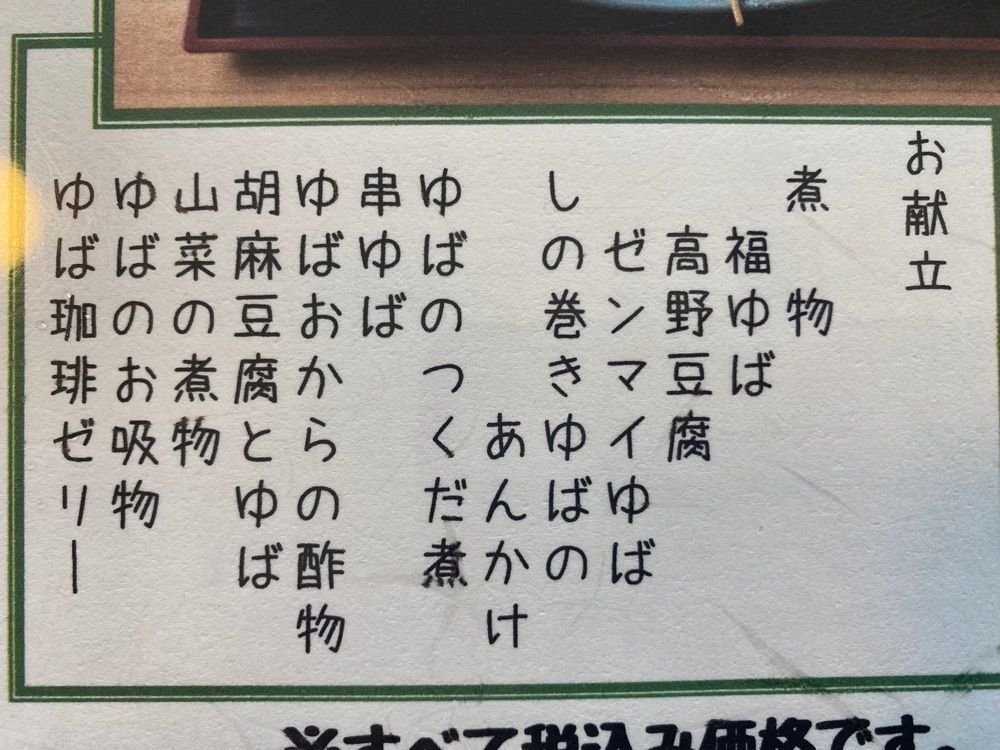 お献立
煮物
福ゆば
高野豆腐
ゼンマイゆば
しの巻きゆばの
あんかけ
ゆばのつくだ煮
串ゆば
ゆばおからの酢物
胡麻豆腐とゆば
山菜の煮物
ゆばのお吸物
ゆば珈琲ゼリー
※すべて税込み価格です。